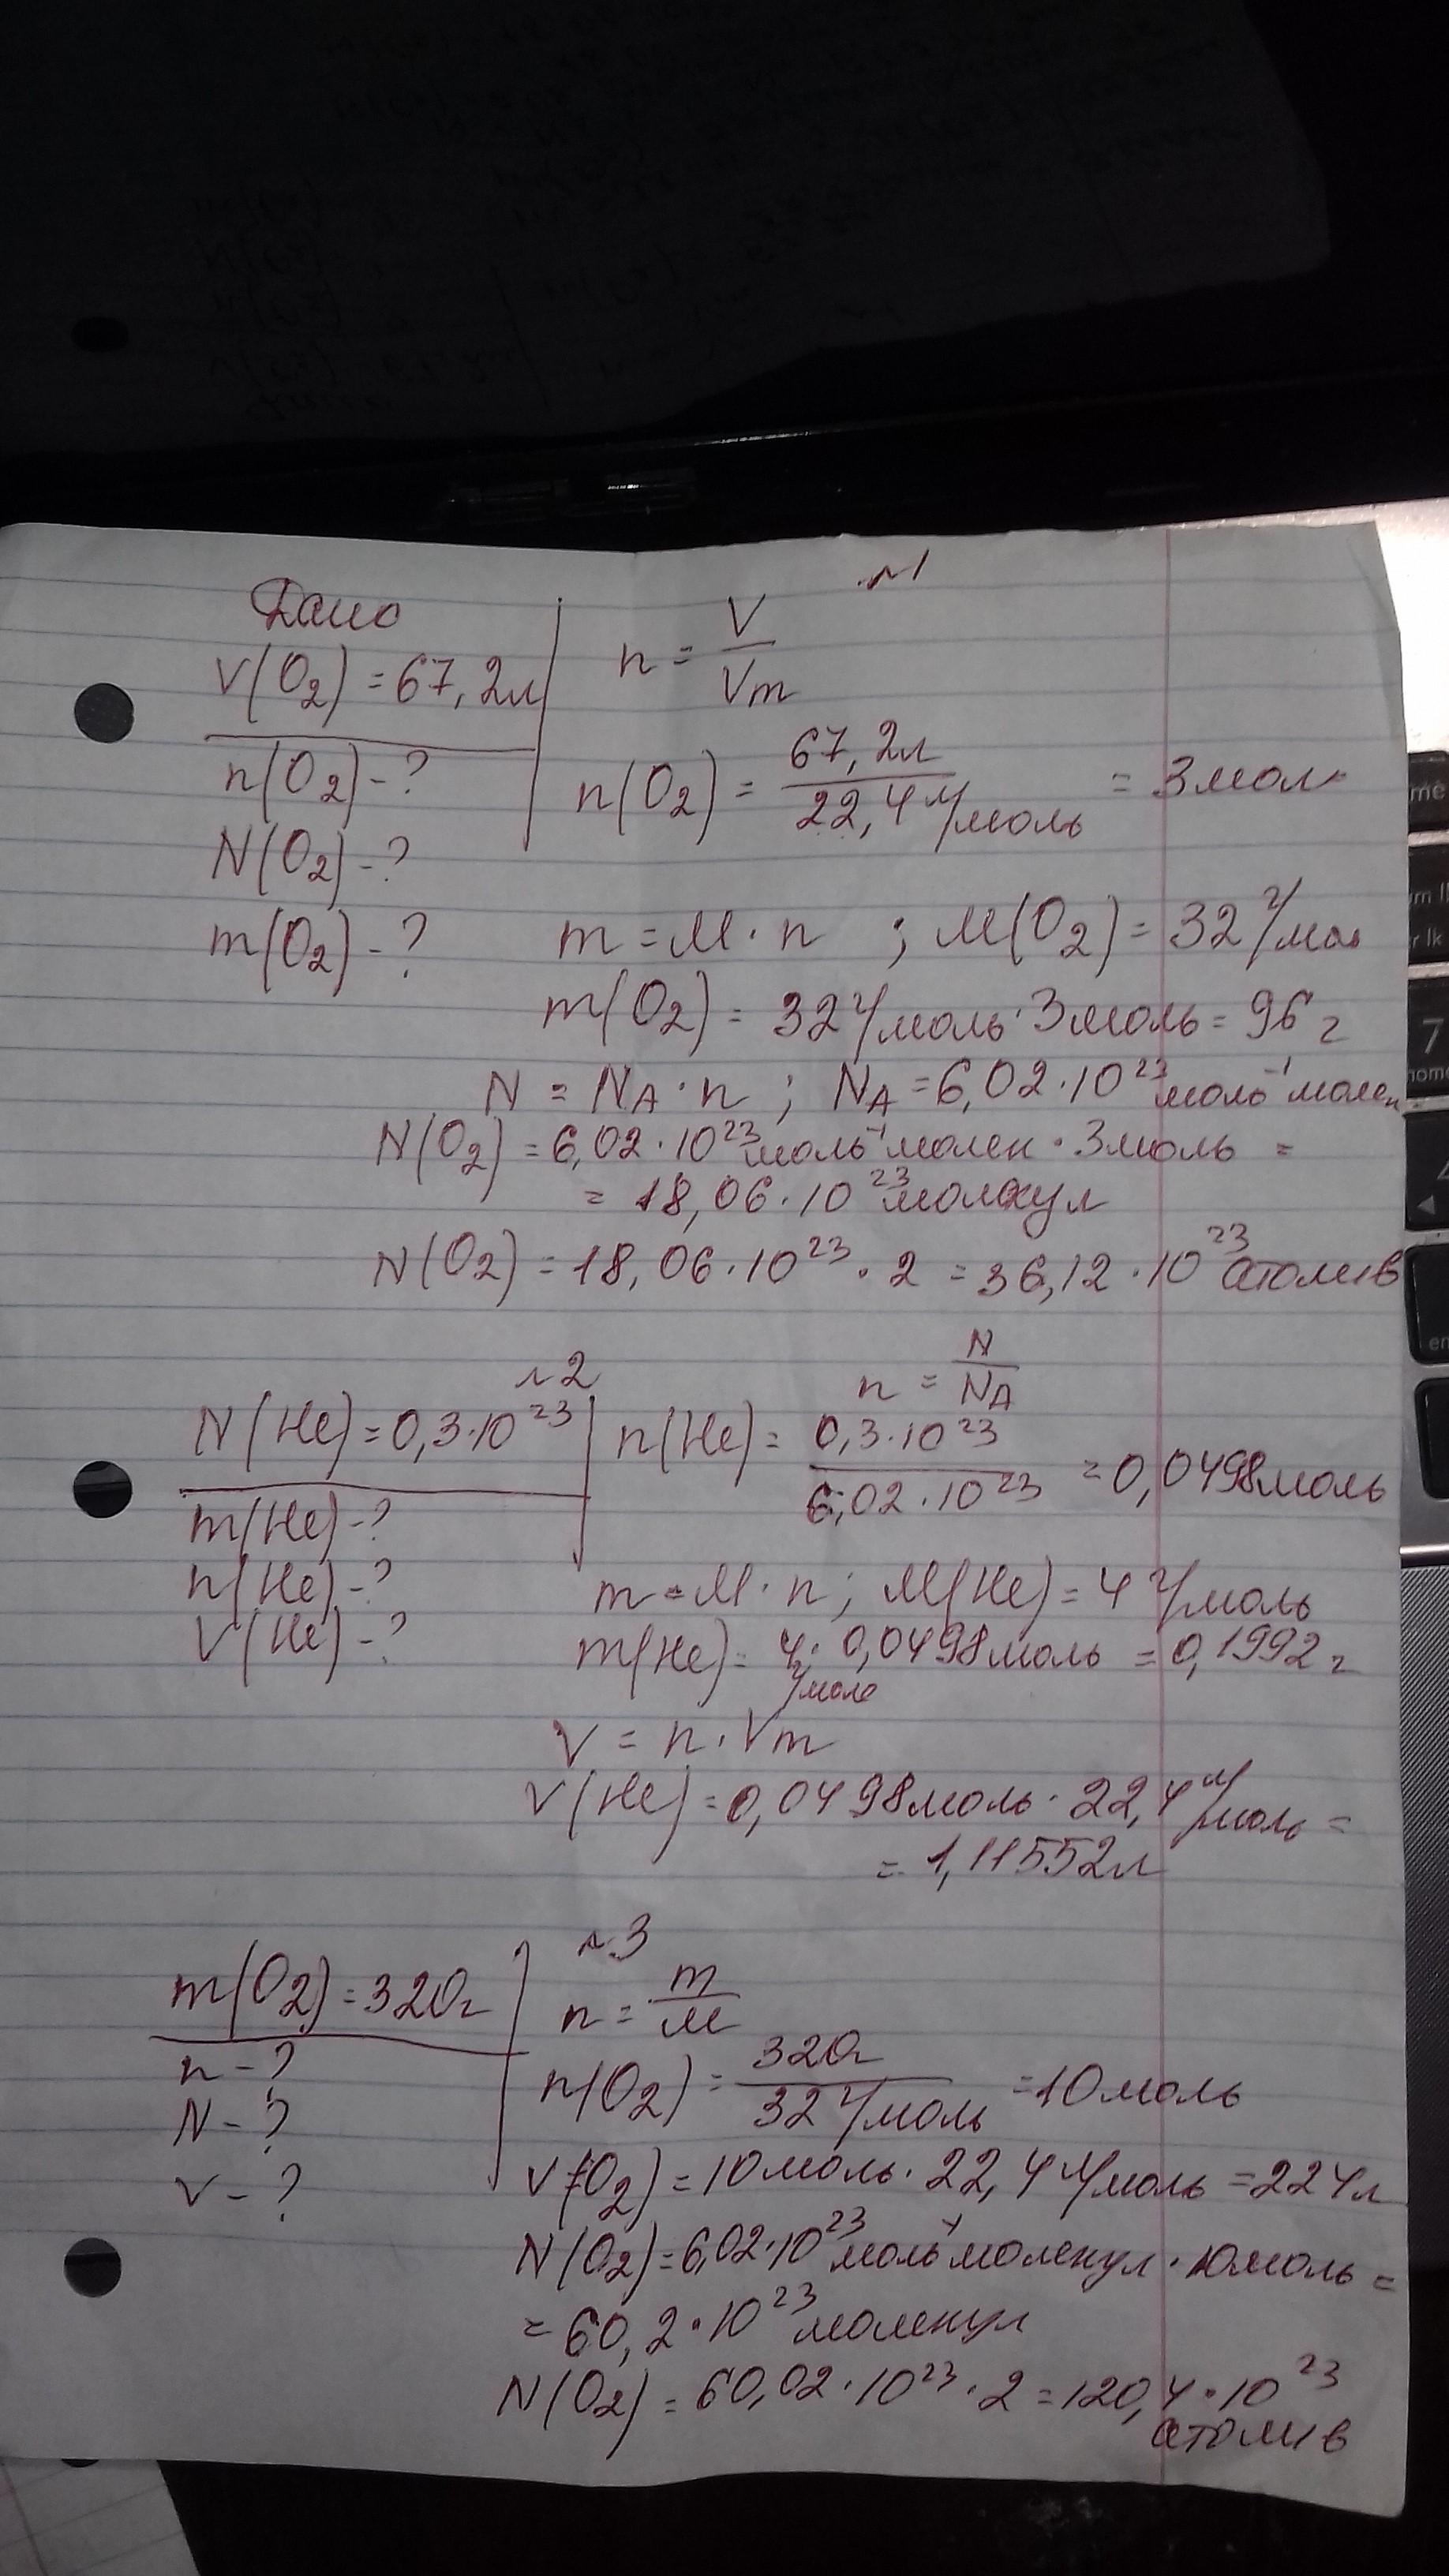 №1
Дано
V(O2) = 67,2л
n = V/Vm
n(O2) - ?
n(O2) = 67,2л / 22,4 л/моль = 3 моль
N(O2) - ?
m(O2) - ?
m = M · n ; M(O2) = 32 г/моль
m(O2) = 32 г/моль · 3 моль = 96 г
N = NA · n ; NA = 6,02 · 10²³ моль⁻¹ молек
N(O2) = 6,02 · 10²³ моль⁻¹ молек · 3 моль =
= 18,06 · 10²³ молекул
N(O2) = 18,06 · 10²³ · 2 = 36,12 · 10²³ атомів
№2
n = N/NA
N(He) = 0,3 · 10²³
n(He) = 0,3 · 10²³ / 6,02 · 10²³ = 0,0498 моль
m(He) - ?
n(He) - ?
V(He) - ?
m = M · n ; M(He) = 4 г/моль
m(He) = 4 г/моль · 0,0498 моль = 0,1992 г
V = n · Vm
V(He) = 0,0498 моль · 22,4 л/моль =
= 1,11552 л
№3
m(O2) = 320г
n = m/M
n - ?
N - ?
V - ?
n(O2) = 320г / 32 г/моль = 10 моль
V(O2) = 10 моль · 22,4 л/моль = 224 л
N(O2) = 6,02 · 10²³ моль⁻¹ молекул · 10 моль =
= 60,2 · 10²³ молекул
N(O2) = 60,02 · 10²³ · 2 = 120,4 · 10²³
атомів